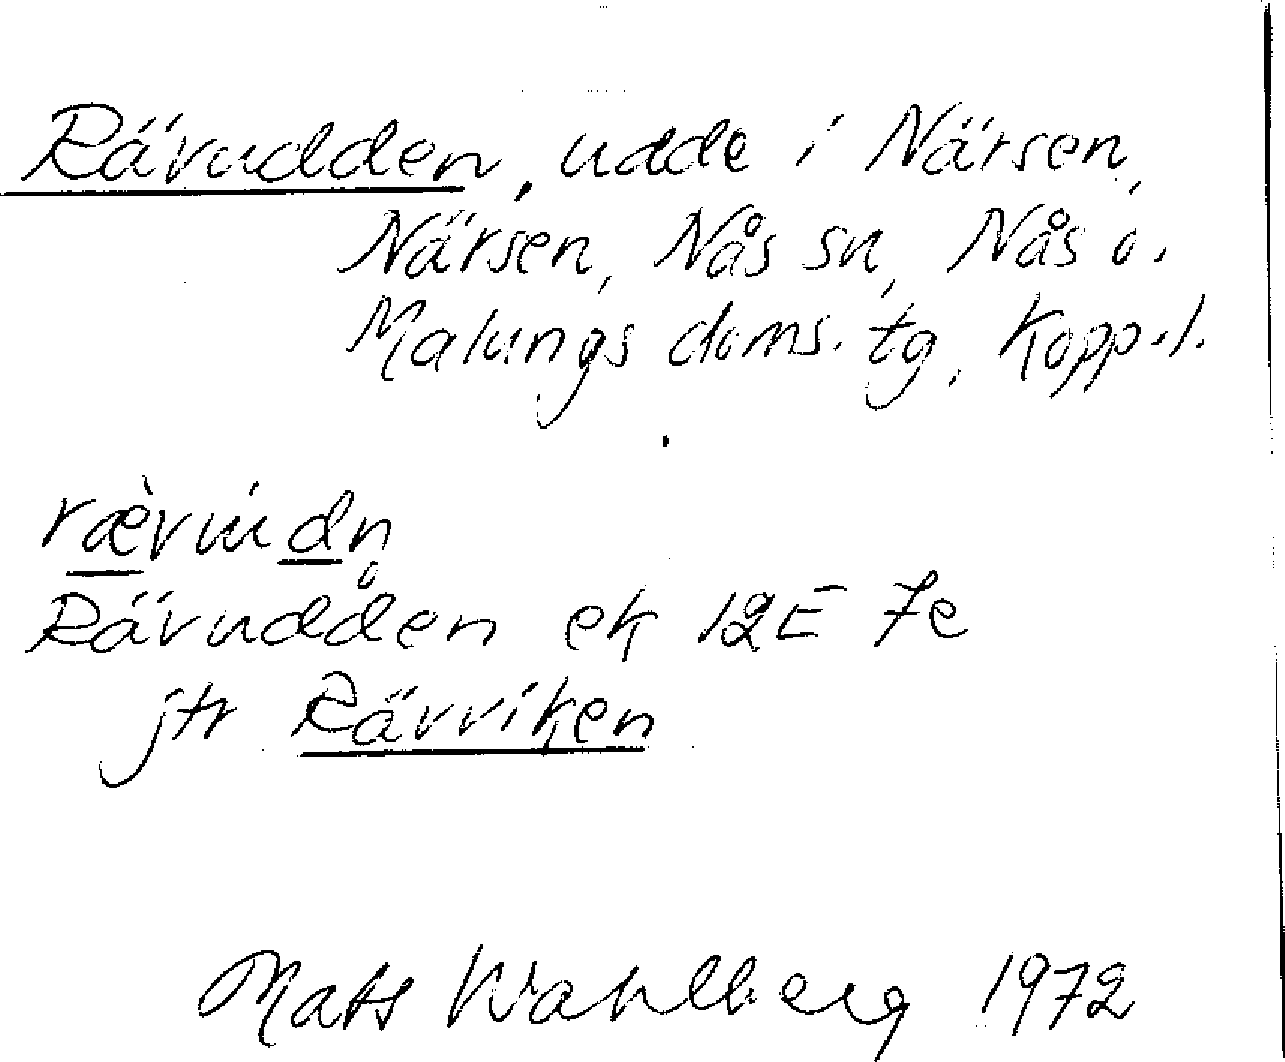 Rävudden, udde i Närsen,
Närsen, Nås sn, Nås o.
Malungs doms. tg, Kopp. l.
Rävudden ek 12E 7e
jfr Rävviken
Mats Wahlberg 1972